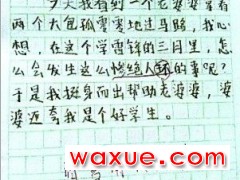 今天我看到一个老婆婆拿着
两个大包孤零零地过马路，我心
想，在这个学雷锋的三月里，怎
么会发生这么惨绝人寰的事呢？
于是我挺身而出帮助老婆婆，婆
婆还夸我是个好学生。
waxue.com